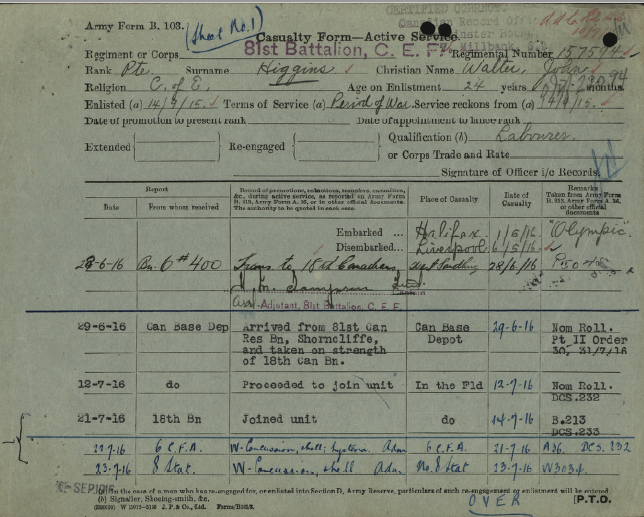 Army Form B. 103.
(Sheet No. 1)
CERTIFIED
Casualty Form—Active Service.
Regiment or Corps 81st Battalion, C. E. F. Regimental Number 157594
Rank Pte. Surname Higgins Christian Name Walter John
Religion C. of E. Age on Enlistment 24 years months.
Enlisted (a) 14/9/15. Terms of Service (a) Period of War Service reckons from (a) 14/9/15.
Date of promotion to present rank Date of appointment to lance rank
Extended Re-engaged Qualification (b) Labourer.
or Corps Trade and Rate
Signature of Officer i/c Records.
Report
Date From whom received
Record of promotions, reductions, transfers, casualties, &c., during active service, as reported on Army Form B. 213, Army Form A. 36, or in other official documents. The authority to be quoted in each case.
Place of Casualty
Date of Casualty
Remarks
Taken from Army Form B. 213, Army Form A. 36, or other official documents
Embarked ... Halifax 1/5/16 "Olympic"
Disembarked... Liverpool 6/5/16
28-6-16 Bn. O # 400 Trans to 18th Canadians Sandling 28/6/16
Adjutant, 81st Battalion, C. E. F.
29-6-16 Can Base Dep Arrived from 81st Can Res Bn, Shorncliffe, and taken on strength of 18th Can Bn. Can Base Depot 29-6-16 Nom Roll. Pt II Order 30, 31/7/16
12-7-16 do Proceeded to join unit In the Fld 12-7-16 Nom Roll. DCS.232
21-7-16 18th Bn Joined unit do 14-7-16 B.213 DCS.233
22.7.16 6 C.F.A. W-Concussion, shell; hysteria. Adm 6 C.F.A. 21-7-16 A36. DCS. 232
23-7-16 8 Stat. W-Concussion, shell Adm. No. 8 Stat 23-7-16 W3034.
SEP 1916
(a) In the case of a man who has re-engaged for, or enlisted into Section D, Army Reserve, particulars of such re-engagement or enlistment will be entered.
(b) Signaller, Shoeing-smith, &c.
J. P. & Co., Ltd. Forms/B103/3.
OVER
[P.T.O.